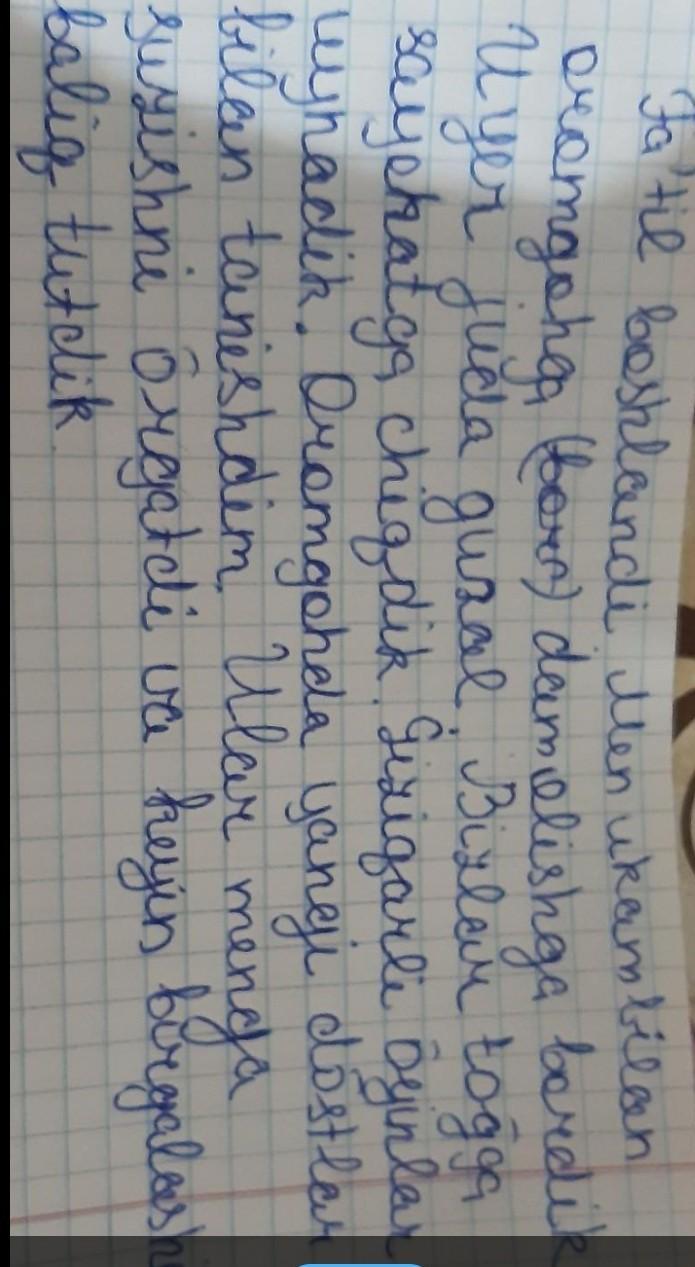 Ta'til boshlandi. Men ukam bilan
oromgohga (bora) dam olishga bordik
U yer juda guzal. Bizlar tōgga
sayohatga chiqdik. Qiziqarli ōyinlar
uynadik. Oromgohda yangi dōstlar
bilan tanishdim. Ular menga
suzishni ōrgatdi va keyin birgalashi
baliq tutdik